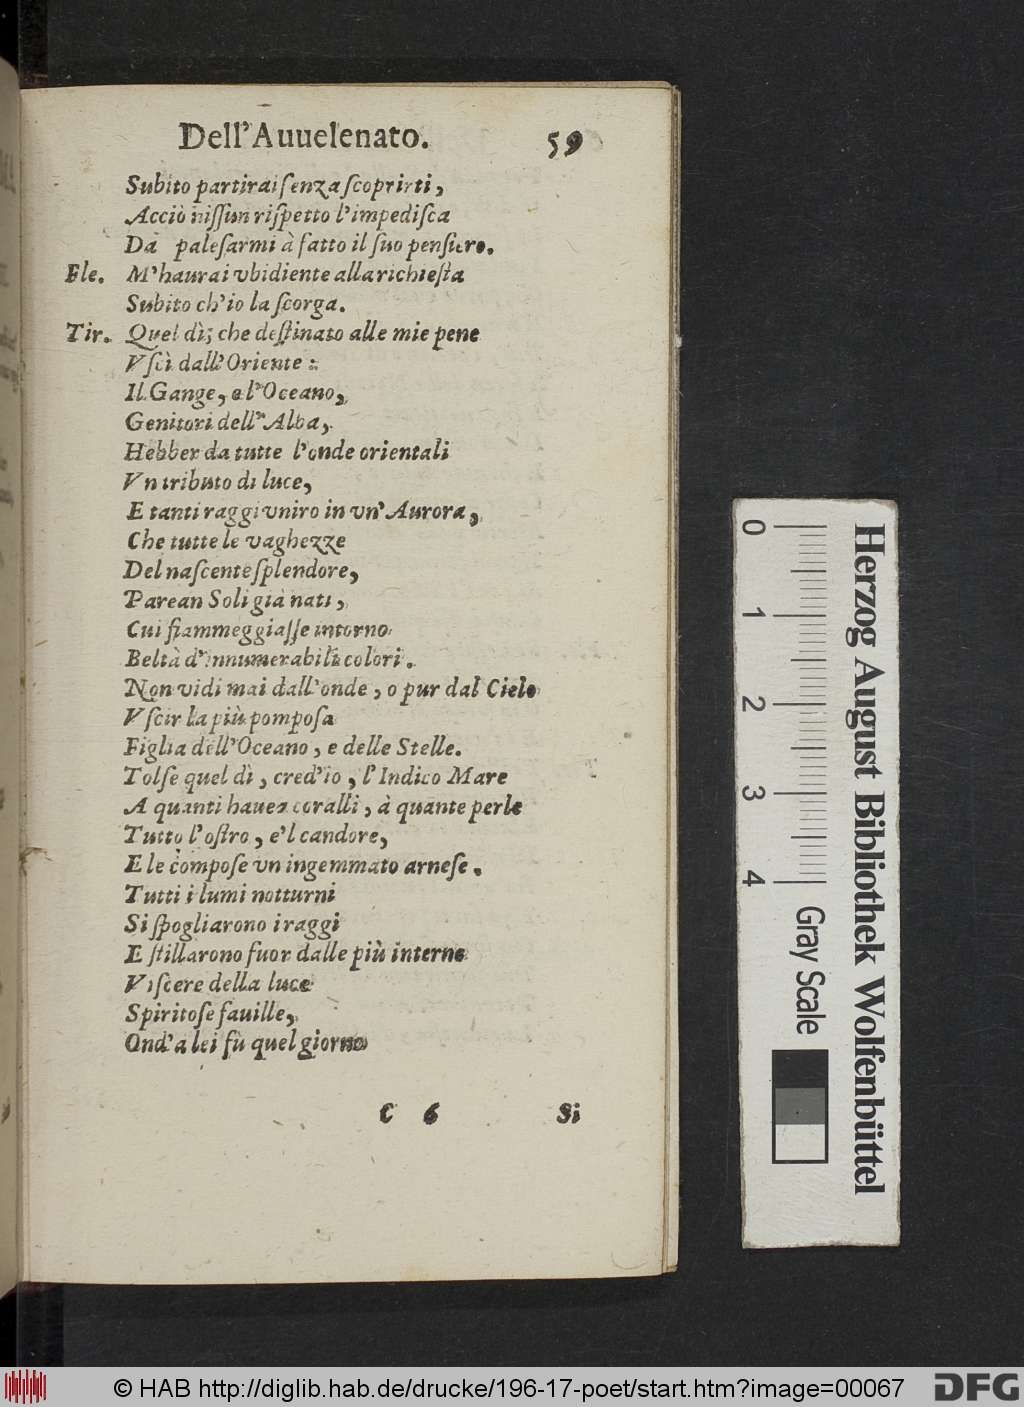 Dell'Auuelenato. 59
Subito partirai ſenza ſcoprirti,
Acciò niſſun riſpetto l'impediſca
Da paleſarmi à fatto il ſuo penſiero.
Ele. M'haurai vbidiente alla richieſta
Subito ch'io la ſcorga.
Tir. Quel dì; che deſtinato alle mie pene
Vſcì dall'Oriente:
Il Gange, e l'Oceano,
Genitori dell'Alba,
Hebber da tutte l'onde orientali
Vn tributo di luce,
E tanti raggi vniro in vn' Aurora,
Che tutte le vaghezze
Del naſcente ſplendore,
Parean Soli già nati,
Cui fiammeggiaſſe intorno
Beltà d'innumerabili colori.
Non vidi mai dall'onde, o pur dal Cielo
Vſcir la più pompoſa
Figlia dell'Oceano, e delle Stelle.
Tolſe quel dì, cred'io, l'Indico Mare
A quanti hauea coralli, à quante perle
Tutto l'oſtro, e'l candore,
E le compoſe vn ingemmato arneſe.
Tutti i lumi notturni
Si ſpogliarono i raggi
E ſtillarono fuor dalle più interne
Viſcere della luce
Spiritoſe fauille,
Ond'a lei fù quel giorno
C 6 Si
0 1 2 3 4 Gray Scale
Herzog August Bibliothek Wolfenbüttel
© HAB http://diglib.hab.de/drucke/196-17-poet/start.htm?image=00067
DFG